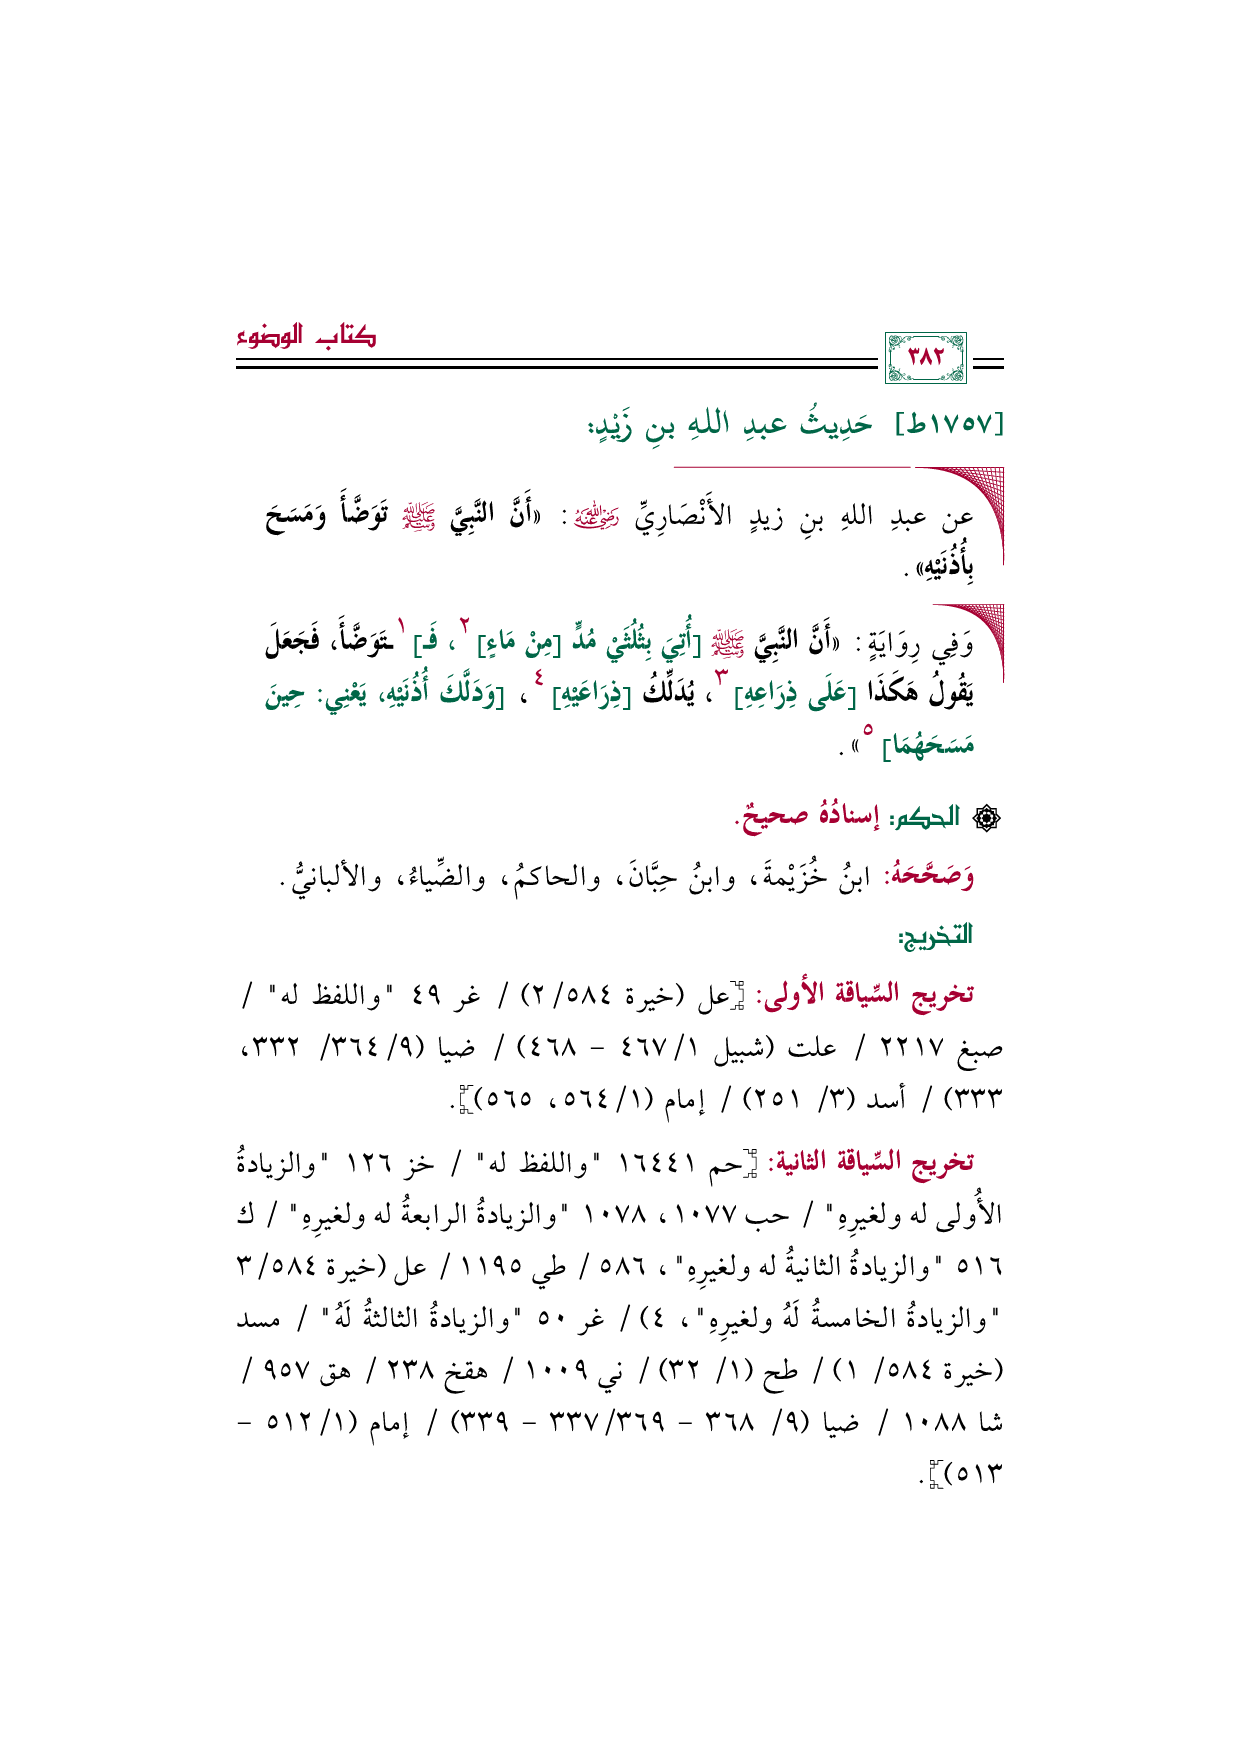 كتاب الوضوء
٣٨٢
[١٧٥٧ط] حَدِيثُ عبدِ اللهِ بنِ زَيْدٍ:
عن عبدِ اللهِ بنِ زيدٍ الأَنْصَارِيِّ رضي الله عنه: «أَنَّ النَّبِيَّ ﷺ تَوَضَّأَ وَمَسَحَ
بِأُذُنَيْهِ».
وَفِي رِوَايَةٍ: «أَنَّ النَّبِيَّ ﷺ [أُتِيَ بِثُلُثَيْ مُدٍّ [مِنْ مَاءٍ]٢، فَـ]١ـتَوَضَّأَ، فَجَعَلَ
يَقُولُ هَكَذَا [عَلَى ذِرَاعِهِ]٣، يُدَلِّكُ [ذِرَاعَيْهِ]٤، [وَدَلَّكَ أُذُنَيْهِ، يَعْنِي: حِينَ
مَسَحَهُمَا]٥».
الحكم: إسنادُهُ صحيحٌ.
وَصَحَّحَهُ: ابنُ خُزَيْمةَ، وابنُ حِبَّانَ، والحاكمُ، والضِّياءُ، والألبانيُّ.
التخريج:
تخريج السِّياقة الأولى: [عل (خيرة ٥٨٤/ ٢) / غر ٤٩ "واللفظ له" /
صبغ ٢٢١٧ / علت (شبيل ١/ ٤٦٧ – ٤٦٨) / ضيا (٩/ ٣٦٤/ ٣٣٢،
٣٣٣) / أسد (٣/ ٢٥١) / إمام (١/ ٥٦٤، ٥٦٥)].
تخريج السِّياقة الثانية: [حم ١٦٤٤١ "واللفظ له" / خز ١٢٦ "والزيادةُ
الأُولى له ولغيرِهِ" / حب ١٠٧٧، ١٠٧٨ "والزيادةُ الرابعةُ له ولغيرِهِ" / ك
٥١٦ "والزيادةُ الثانيةُ له ولغيرِهِ"، ٥٨٦ / طي ١١٩٥ / عل (خيرة ٥٨٤/ ٣
"والزيادةُ الخامسةُ لَهُ ولغيرِهِ"، ٤) / غر ٥٠ "والزيادةُ الثالثةُ لَهُ" / مسد
(خيرة ٥٨٤/ ١) / طح (١/ ٣٢) / ني ١٠٠٩ / هقخ ٢٣٨ / هق ٩٥٧ /
شا ١٠٨٨ / ضيا (٩/ ٣٦٨ – ٣٦٩/ ٣٣٧ – ٣٣٩) / إمام (١/ ٥١٢ –
٥١٣)].